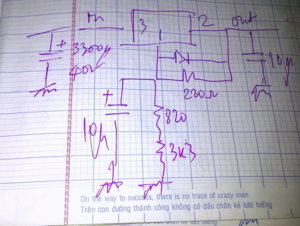 In 3 1 2 out
+ 3300µ
40V
10µ
220Ω
+
10µ
820
3K3
On the way to success, there is no trace of crazy men
Trên con đường thành công không có dấu chân kẻ lười biếng